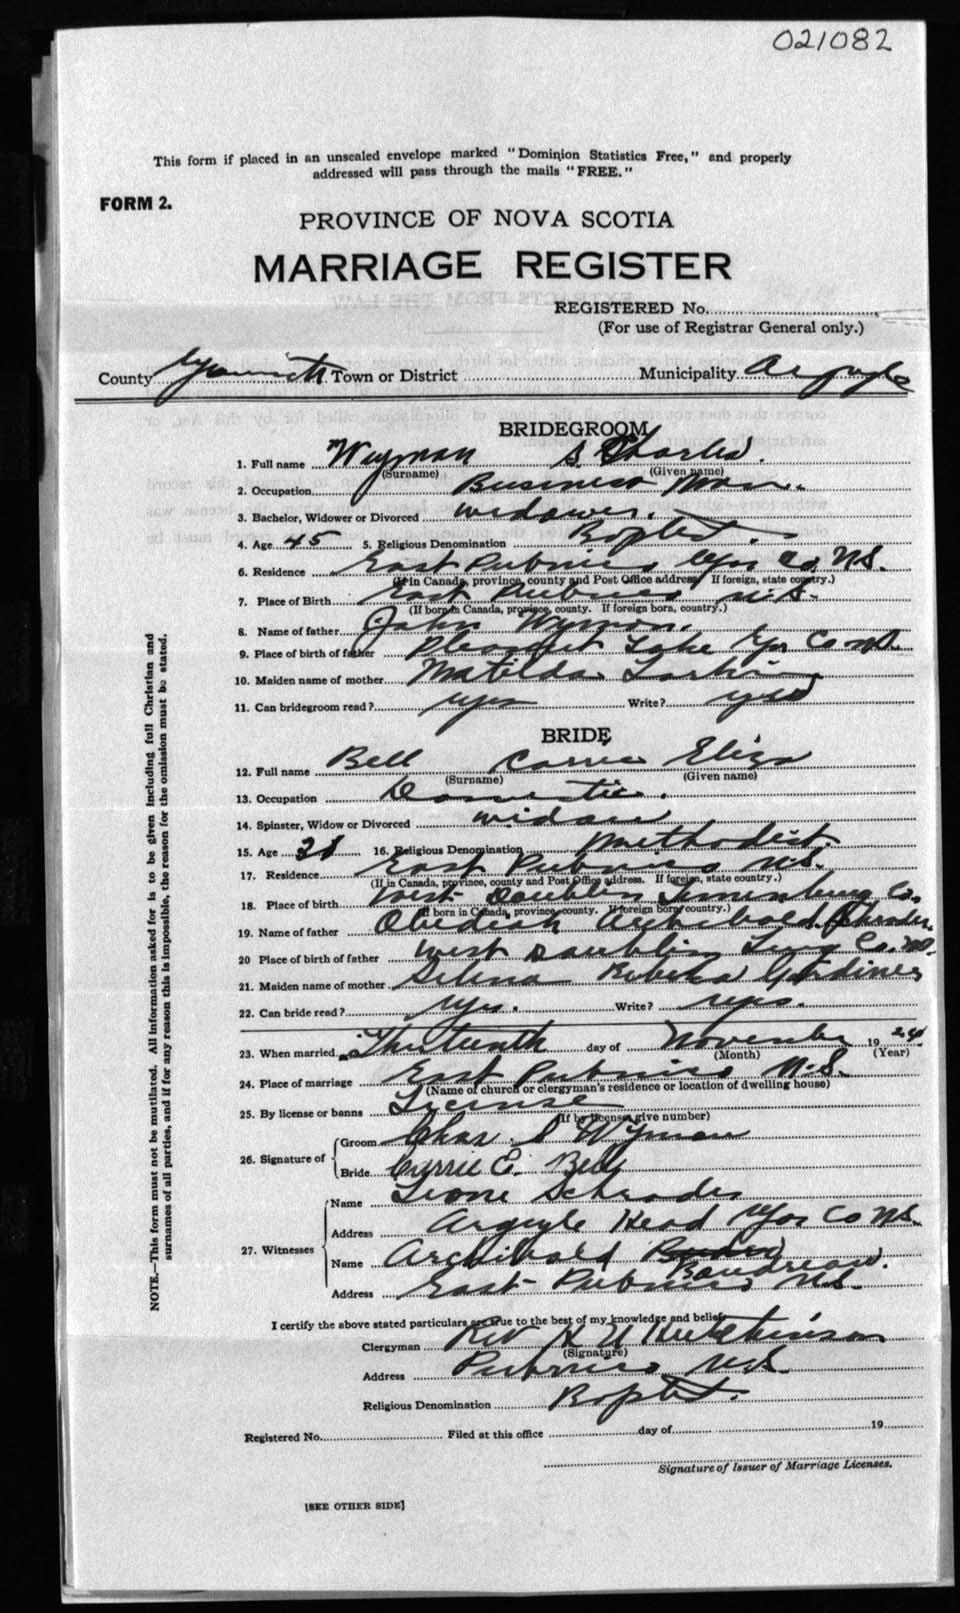 021082
This form if placed in an unsealed envelope marked "Dominion Statistics Free," and properly
addressed will pass through the mails "FREE."
FORM 2.
PROVINCE OF NOVA SCOTIA
MARRIAGE REGISTER
REGISTERED No.
(For use of Registrar General only.)
County Yarmouth Town or District Municipality Argyle
BRIDEGROOM
1. Full name Wyman S. Charles.
(Surname) (Given name)
2. Occupation Business Man.
3. Bachelor, Widower or Divorced widower.
4. Age 45 5. Religious Denomination Baptist.
6. Residence East Pubnico Yar Co. N.S.
(If in Canada, province, county and Post Office address If foreign, state country.)
7. Place of Birth East Pubnico N.S.
(If born in Canada, province, county. If foreign born, country.)
8. Name of father John Wyman.
9. Place of birth of father Pleasant Lake Yar Co N.S.
10. Maiden name of mother Matilda Larkin
11. Can bridegroom read? yes Write? yes
BRIDE
12. Full name Bell Carrie Eliza
(Surname) (Given name)
13. Occupation Domestic.
14. Spinster, Widow or Divorced widow
15. Age 16. Religious Denomination Methodist.
17. Residence East Pubnico N.S.
(If in Canada, province, county and Post Office address. If foreign, state country.)
18. Place of birth West Doublin Lunenburg Co.
(If born in Canada, province, county. If foreign born, country.)
19. Name of father Obediah Archibald Schrader.
20 Place of birth of father West Doublin Lung Co. N.S.
21. Maiden name of mother Selena Rebeka
22. Can bride read? yes. Write? yes.
23. When married Thirteenth day of November 1924
(Month) (Year)
24. Place of marriage East Pubnico N.S.
(Name of church or clergyman's residence or location of dwelling house)
25. By license or banns License
(If by license give number)
26. Signature of Groom Chas. S Wyman
Bride Carrie E. Bell
27. Witnesses Name Leone Schrader
Address Argyle Head Yar Co N.S.
Name Archibald Boudreau.
Address East Pubnico N.S.
I certify the above stated particulars are true to the best of my knowledge and belief.
Clergyman Rev H U Hutchinson
(Signature)
Address Pubnico N.S.
Religious Denomination Baptist.
Registered No. Filed at this office day of 19
Signature of Issuer of Marriage Licenses.
[SEE OTHER SIDE]
NOTE.—This form must not be mutilated. All information asked for is to be given including full Christian and
surnames of all parties, and if for any reason this is impossible, the reason for the omission must be stated.